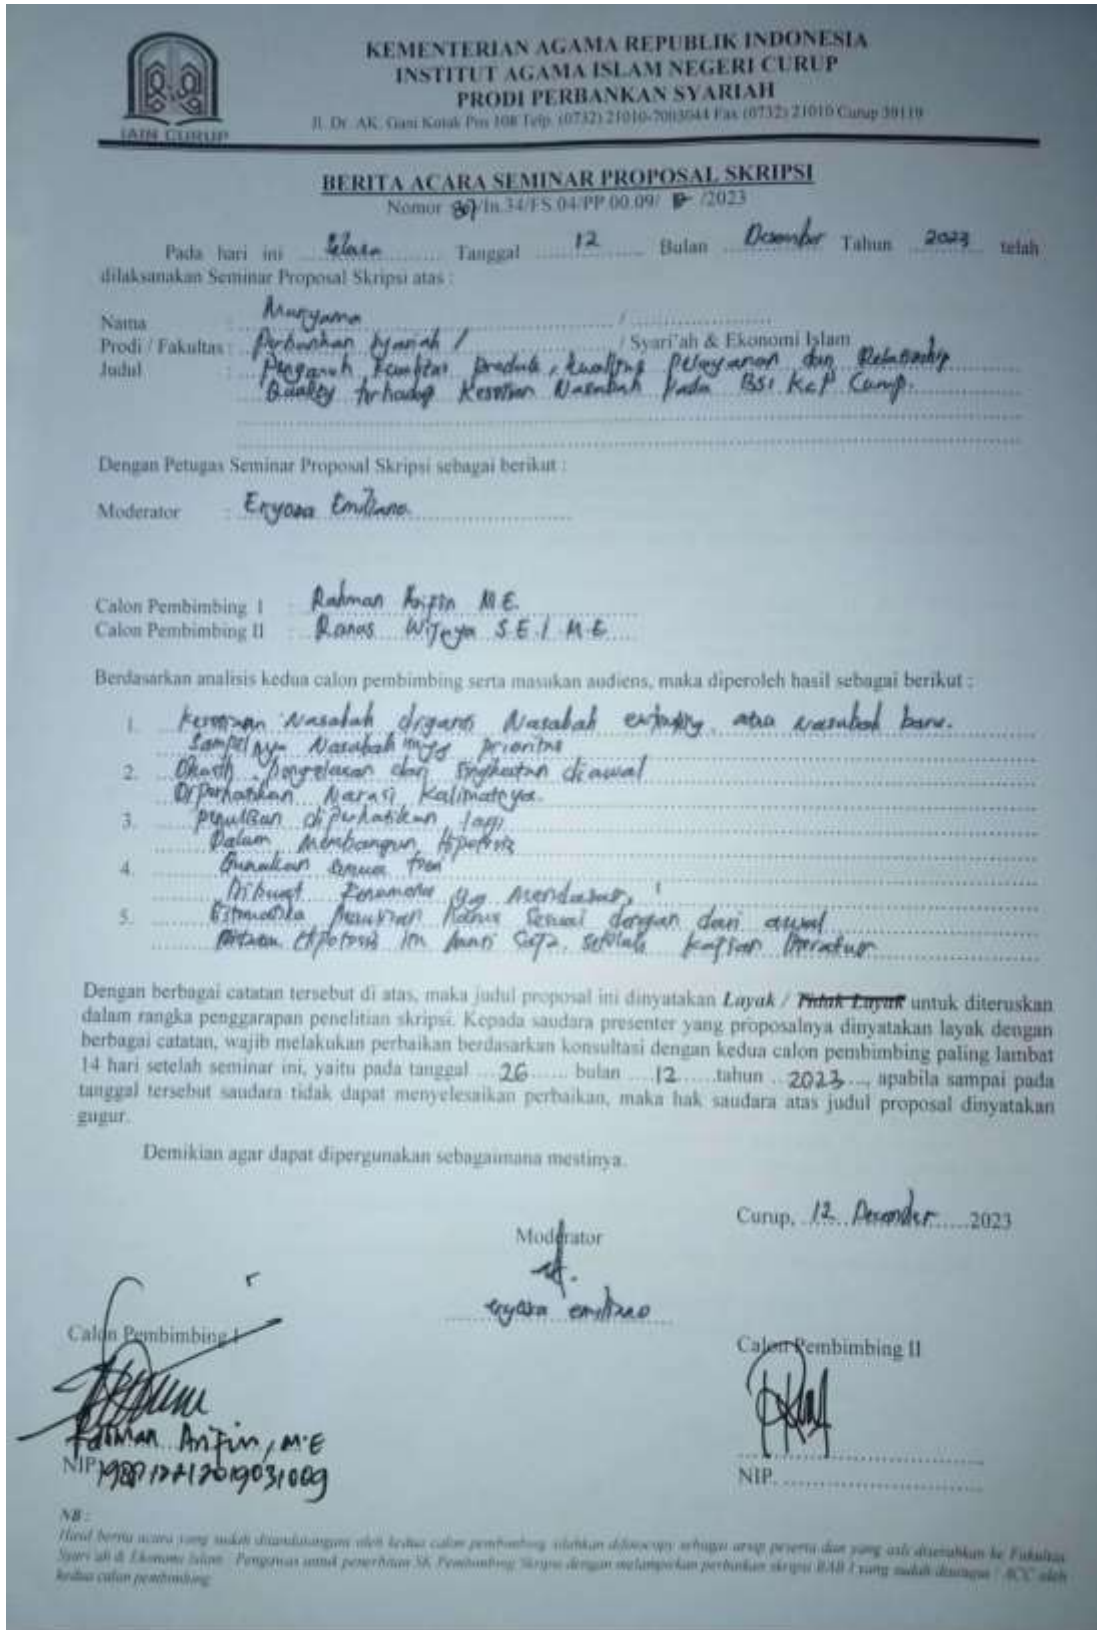 KEMENTERIAN AGAMA REPUBLIK INDONESIA
INSTITUT AGAMA ISLAM NEGERI CURUP
PRODI PERBANKAN SYARIAH
Jl. Dr. AK. Gani Kotak Pos 108 Telp. (0732) 21010-7003044 Fax (0732) 21010 Curup 39119
IAIN CURUP
BERITA ACARA SEMINAR PROPOSAL SKRIPSI
Nomor /In.34/FS.04/PP.00.09/ /2023
Pada hari ini Selasa Tanggal 12 Bulan Desember Tahun 2023 telah
dilaksanakan Seminar Proposal Skripsi atas :
Nama : Muryama /
Prodi / Fakultas : Perbankan Syariah / / Syari'ah & Ekonomi Islam
Judul : Pengaruh Kualitas Produk, Kualitas Pelayanan dan Relationship
Quality terhadap Kesetian Nasabah Pada BSI KCP Curup.
Dengan Petugas Seminar Proposal Skripsi sebagai berikut :
Moderator : Eryosa Emiliano
Calon Pembimbing I : Rahman Arifin M.E.
Calon Pembimbing II : Ranas Wijaya S.E.I M.E
Berdasarkan analisis kedua calon pembimbing serta masukan audiens, maka diperoleh hasil sebagai berikut :
1. Nasabah diganti Nasabah atau nasabah baru.
Sampelnya Nasabah prioritas
2. penjelasan dan singkatan diawal
Diperhatikan Narasi Kalimatnya.
3. penulisan diperhatikan lagi
Dalam Membangun Hipotesis
4. Gunakan
Dibuat Fenomena yg Mendasar,
5. Harus Sesuai dengan dari awal
Hipotesis setelah kajian literatur
Dengan berbagai catatan tersebut di atas, maka judul proposal ini dinyatakan Layak / Tidak Layak untuk diteruskan
dalam rangka penggarapan penelitian skripsi. Kepada saudara presenter yang proposalnya dinyatakan layak dengan
berbagai catatan, wajib melakukan perbaikan berdasarkan konsultasi dengan kedua calon pembimbing paling lambat
14 hari setelah seminar ini, yaitu pada tanggal 26 bulan 12 tahun 2023, apabila sampai pada
tanggal tersebut saudara tidak dapat menyelesaikan perbaikan, maka hak saudara atas judul proposal dinyatakan
gugur.
Demikian agar dapat dipergunakan sebagaimana mestinya.
Curup, 12 Desember 2023
Moderator
eryosa emiliano
Calon Pembimbing I
Calon Pembimbing II
Rahman Arifin, M.E
NIP.
NIP.
NB :
Hasil berita acara yang sudah ditandatangani oleh kedua calon pembimbing silahkan difotocopy sebagai arsip peserta dan yang asli diserahkan ke Fakultas
Syari'ah & Ekonomi Islam / Pengawas untuk penerbitan SK Pembimbing Skripsi dengan melampirkan perbaikan skripsi BAB I yang sudah disetujui / ACC oleh
kedua calon pembimbing